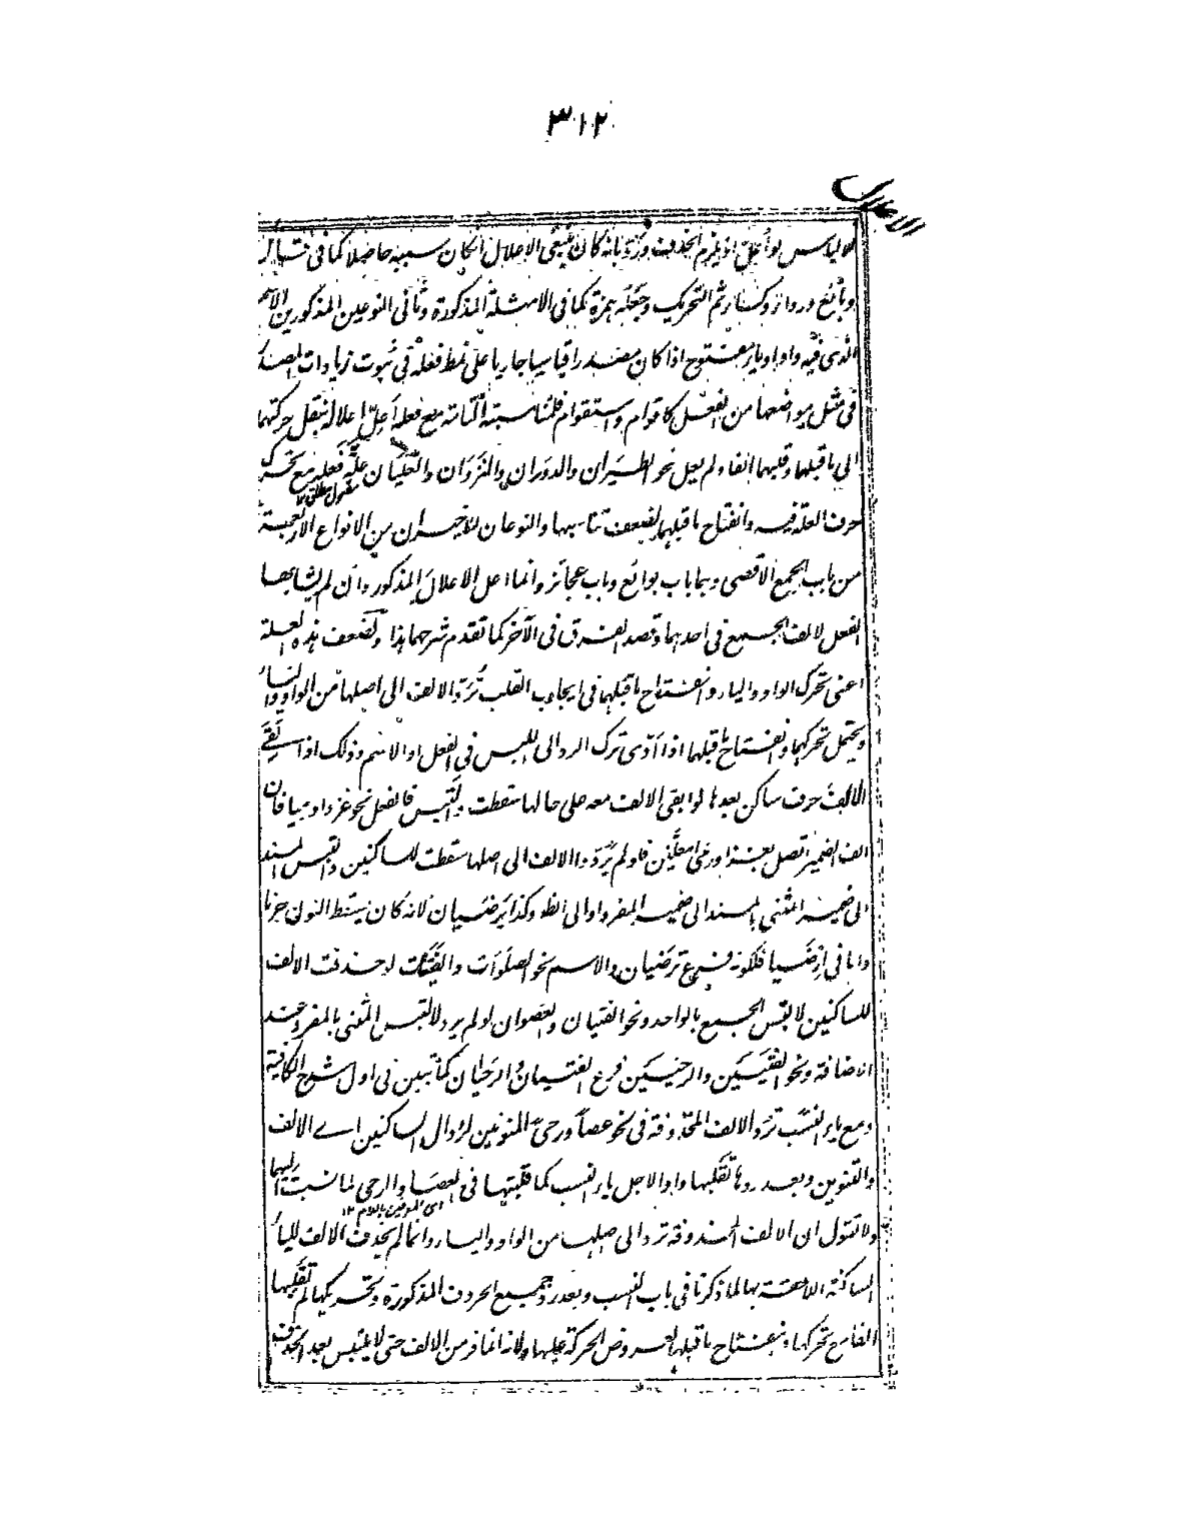 ٣١٢
الاعلال
لالباس لو أعل اذ يلزم الحذف ورد بانه كان ينبغى الاعلال ان كان سببه حاصلا كما فى
وبائع ورداء وكساء ثم التحريك وجعله همزة كما فى الامثلة المذكورة وثانى النوعين المذكورين الاسم
الذى فيه واو او ياء مفتوح اذا كان مصدرا قياسيا جاريا على نمط فعله فى ثبوت زيادات المصدر
فى مثل مواضعها من الفعل كاقوام واستقوام فلمناسبته التامة مع فعله اعل اعلاله بنقل حركتهما
الى ما قبلها وقلبهما الفا ولم يعل نحو الطيران والدوران والنزوان والغليان علة فعله مع تحرك
مفعول مطلق ١٢
حرف العلة فيه وانفتاح ما قبلها لضعف تناسبها والنوعان الاخيران من الانواع الاربعة
من باب الجمع الاقصى وهما باب بوائع وباب عجائز وانما اعل الاعلال المذكور وان لم يشابها
الفعل لالف الجمع فى احدهما وقصد الفرق فى الآخر كما تقدم شرحهما هذا ولضعف هذه العلة
اعنى تحرك الواو والياء وانفتاح ما قبلهما فى ايجاب القلب ترد الالف الى اصلها من الواو والياء
ويحتمل تحركها وانفتاح ما قبلها اذا ادى ترك الرد الى اللبس فى الفعل او الاسم وذلك اذا لقى
الالف حرف ساكن بعدها لو ابقى الالف معه على حالها سقطت والتبس فالفعل نحو غزوا ورميا فان
الف الضمير اتصل بغزا ورمى معلين فلو لم يردوا الالف الى اصلها سقطت للساكنين والتبس المسند
الى ضمير المثنى بالمسند الى ضمير المفرد او الى الظاهر وكذا يرضيان لانه كان يسقط النون جزما
واما فى ارضيا فلكونه فرع ترضيان والاسم نحو الصلوات والفتيات لو حذفت الالف
للساكنين لالتبس الجمع بالواحد ونحو الفتيان والعصوان لو لم يرد لالتبس المثنى بالمفرد عند
الاضافة ونحو الفتيين والرحيين فرع الفتيان والرحيان كما تبين فى اول شرح الكافية
ومع ياء النسب ترد الالف المحذوفة فى نحو عصا ورحى المنونين لزوال الساكنين اى الالف
والتنوين وبعد ردها تقلبها واوا لاجل ياء النسب كما قلبتها فى العصا والرحى لما نسبت اليهما
اى المعرفين باللام ١٢
ولا نقول ان الالف المحذوفة ترد الى اصلها من الواو والياء وانما لم يحذف الالف للياء
الساكنة اللاحقة بها لما ذكرنا فى باب النسب وبعد رد جميع الحروف المذكورة وتحريكها لم تقلبها
الفا مع تحركها وانفتاح ما قبلها لعروض الحركة عليها ولانه انما فر من الالف حتى لا يلتبس بعد الحذف